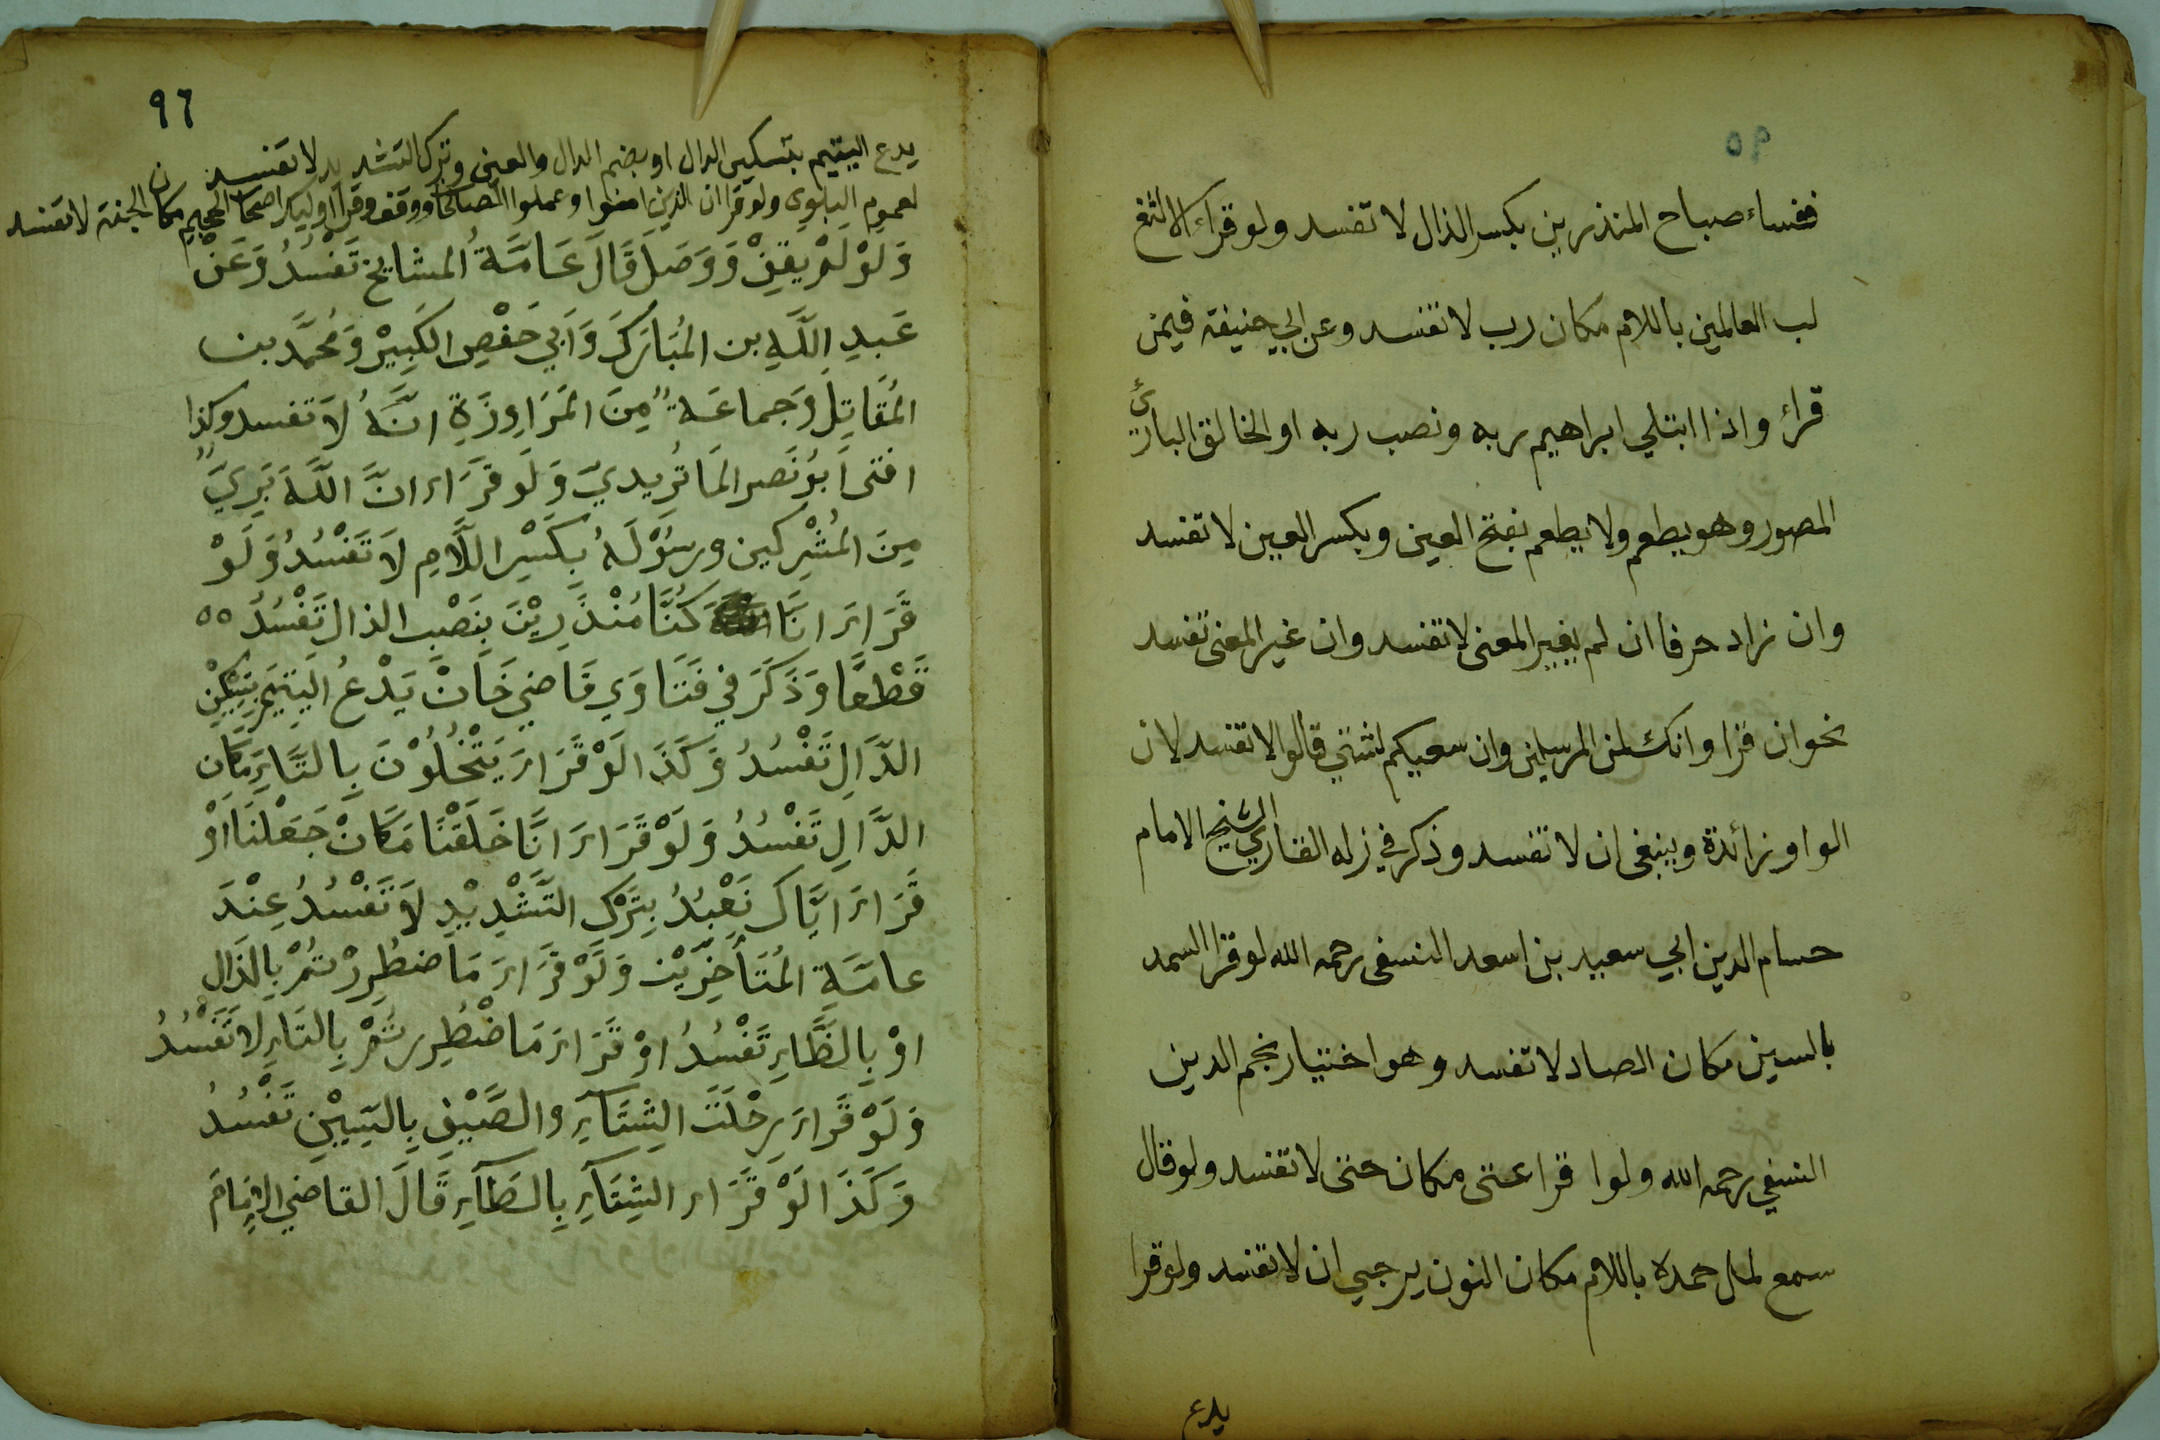 ٩٥
فساء صباح المنذرين بكسر الذال لا تفسد ولو قراء الالثغ
لب العالمين باللام مكان رب لا تفسد وعن ابي حنيفة فيمن
قراء واذا ابتلي ابراهيم ربه ونصب ربه او الخالق البارئ
المصور وهو يطعم ولا يطعم بفتح العين وبكسر العين لا تفسد
وان زاد حرفا ان لم يغير المعنى لا تفسد وان غير المعنى تفسد
نحو ان قرا وانك لمن المرسلين وان سعيكم لشتي قالوا لا تفسد لان
الواو زائدة وينبغي ان لا تفسد وذكر في زله القاري الشيخ الامام
حسام الدين ابي سعيد بن اسعد النسفي رحمه الله لو قرا السمد
بالسين مكان الصاد لا تفسد وهو اختيار نجم الدين
النسفي رحمه الله ولوا قرا عتى مكان حتى لا تفسد ولو قال
سمع لمل حمده باللام مكان النون يرجي ان لا تفسد ولو قرا
يدع
٩٦
يدع اليتيم بتسكين الدال او بضم الدال والعين وترك التشديد لا تفسد
لعموم البلوى ولو قرا ان الذين امنوا وعملوا الصالحات ووقف وقرا اوليك اصحاب الجحيم مكان الجنة لا تفسد
وَلَوْ لَمْ يقِفْ وَوَصَلَ قَالَ عَامَّةُ المشايخ تَفْسُدُ وَعَنْ
عَبدِ اللَّهِ بن المُبَارَكَ وَاَبِي حَفْصِ الكَبِيْر وَمُحمَّد بن
المُقَاتِل وَجماعَة مِنَ المَرَاوِزَةِ انَّهُ لاَ تفسد وكذا
افتى اَبُو نَصر المَاتُرِيديّ وَلَو قَرَاء انَّ اللَّهَ بَرِيٌ
مِنَ المُشْرِكين ورسُوْلَهُ بِكَسْرِ اللَّامِ لَا تَفْسُدُ وَلَوْ
قَرَاءَ انَّا كُنَّا مُنْذَرِيْنَ بِنَصْبِ الذال تَفْسُدُ
قَطْعًا وَذَكَرَ في فَتَاوَي قَاضِي خَانْ يَدْعُ اليَتِيْمَ بِتَسْكِيْنِ
الدَّالِ تَفْسُدُ وَكَذَا لَوْ قَرَاءَ يَتْخُلُوْنَ بِالتَّاءِ مَكَان
الدَّالِ تَفْسُدُ وَلَوْ قَرَاءَ انَّا خَلَقْنَا مَكَانْ جَعَلْنَا اَوْ
قَرَاءَ ايَّاكَ نَعْبُدُ بِتَرْكِ التَّشْدِيْدِ لاَ تَفْسُدُ عِنْدَ
عامَّةِ المُتَأَخِرِّيْن وَلَوْ قَرَاءَ مَا ضطُرِدْتُمْ بِالذَالِ
اوْ بِالظَّاءِ تَفْسُدُ اوْ قَرَاءَ مَا ضْطُرِرتُمْ بِالتَاءِ لَا تَفْسُدُ
وَلَوْ قَرَاءَ رِحْلَتَ الشِتَآءِ والصَّيْفِ بِالسِيْنِ تَفْسُدُ
وَكَذَا لَوْ قَرَاء الشِتَآءِ بِالطَآءِ قَالَ القاضي الاِمَامَ